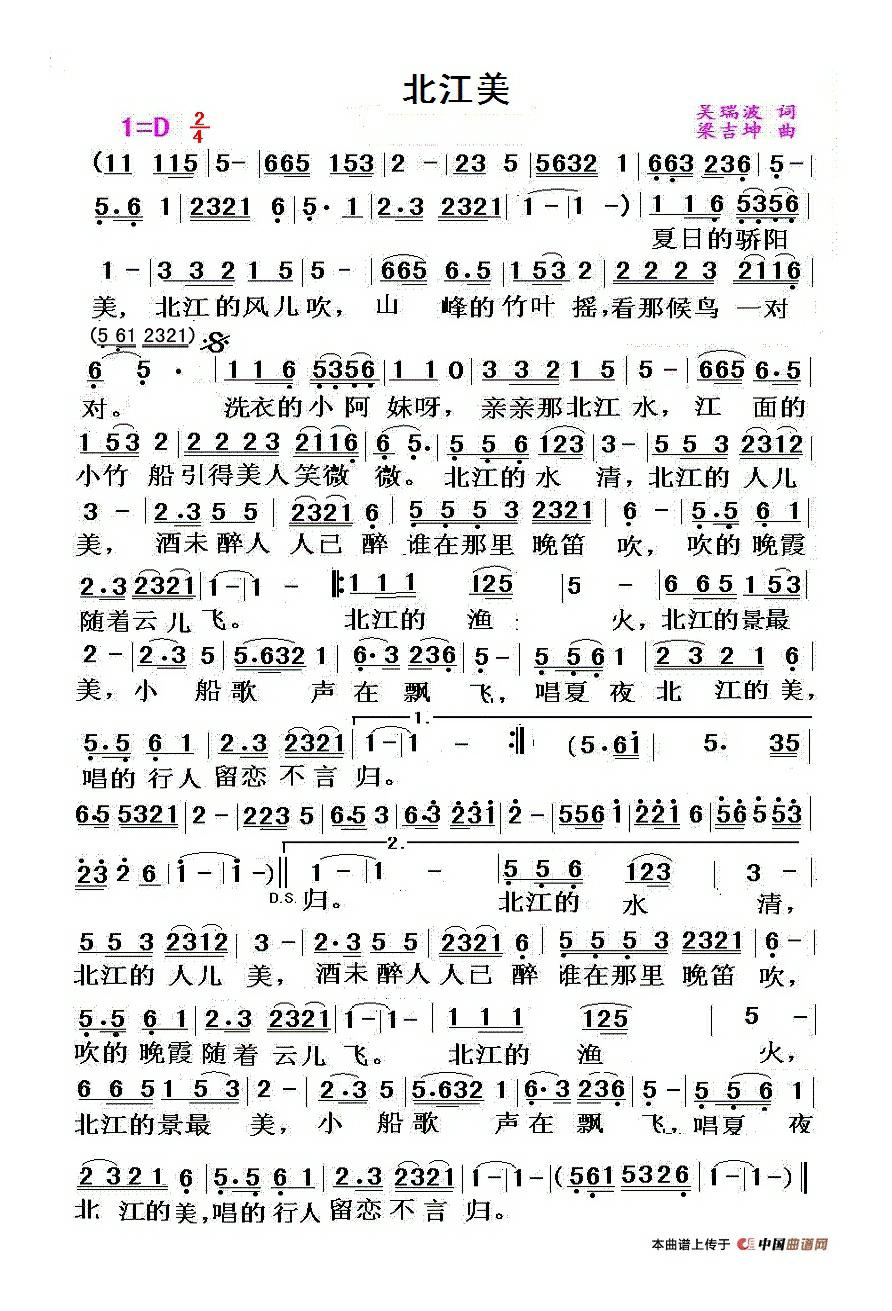 北江美
1=D 2/4
吴瑞波 词
梁吉坤 曲
(11 115|5-|665 153|2-|235|5632 1|663 236|5-|
5.6 1|2321 6|5.1|2.3 2321|1-|1-)|1 1 6 5356|
夏日的骄阳
1-|3 3 2 1 5|5-|665 6.5|1 53 2|2 2 2 3 2116|
美, 北江的风儿吹, 山 峰的竹叶 摇,看那候鸟 一对
(5 61 2321)
6 5 ·|1 1 6 5356|1 1 0|3 3 2 1 5|5-|665 6.5|
对。 洗衣的小阿 妹呀, 亲亲那北江 水, 江 面的
1 53 2|2 2 2 3 2116|6 5.|5 5 6 123|3-|5 5 3 2312|
小竹 船引得美人笑微 微。 北江的水 清, 北江的 人儿
3-|2.3 5 5|2321 6|5 5 5 3 2321|6-|5.5 6 1|
美, 酒未醉人 人已 醉 谁在那里 晚笛 吹, 吹的 晚霞
2.3 2321|1-|1-|:1 1 1 125|5 -|6 65 1 53|
随着云儿 飞。 北江的 渔 火, 北江的景最
2-|2.3 5|5.632 1|6.3 236|5-|5 56 5 6|2321 6|
美, 小 船歌 声在 飘 飞, 唱夏 夜 北 江的 美,
1.
5.5 6 1|2.3 2321|1-|1 -:|(5.6i|5. 35|
唱的 行人 留恋 不言 归。
6.5 5321|2-|223 5|6.53|6.3 231|2-|556 1|221 6|56553|
2.
23 2 6|1-|1-)||1-|1-|5 5 6 123|3-|
D.S. 归。 北江的 水 清,
5 5 3 2312|3-|2.3 5 5|2321 6|5 5 5 3 2321|6-|
北江的 人儿 美, 酒未醉人 人已 醉 谁在那里 晚笛 吹,
5.5 6 1|2.3 2321|1-|1-|1 1 1 125|5 -|
吹的 晚霞 随着 云儿 飞。 北江的 渔 火,
6 6 5 1 53|2-|2.3 5|5.632 1|6.3 236|5-|5 56 1|
北江的景最 美, 小 船歌 声在 飘 飞,唱夏 夜
2 321 6|5.5 6 1|2.3 2321|1-|1-|(561 5326|1-|1-)||
北 江的美,唱的 行人 留恋 不言 归。
本曲谱上传于 中国曲谱网